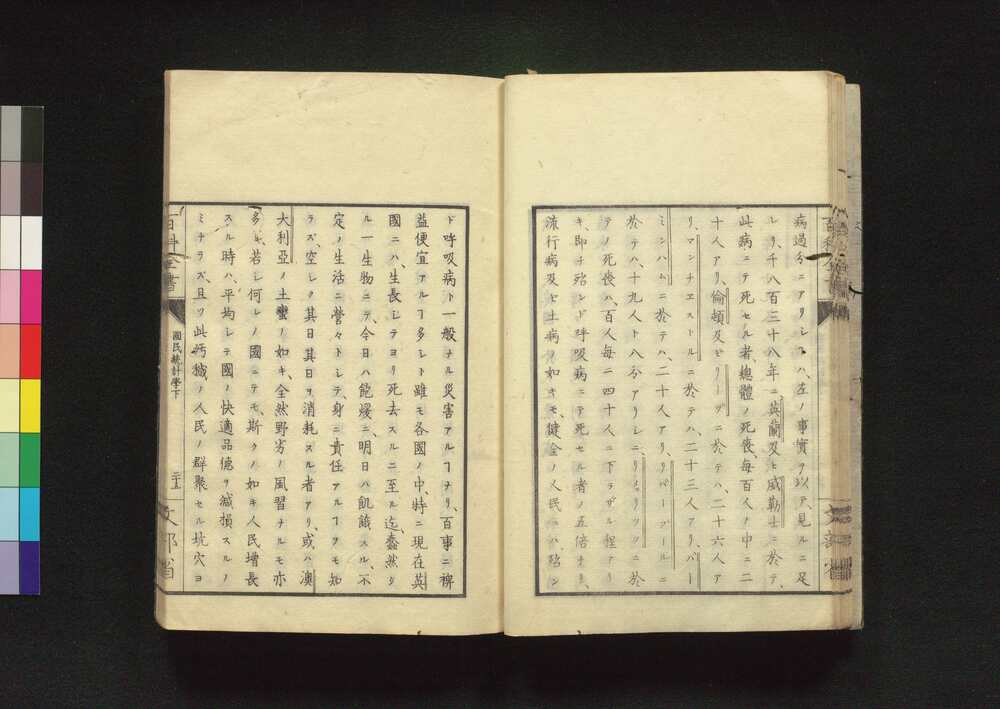 病過分ニアリシヿハ、左ノ事實ヲ以テ見ルニ足
レリ、千八百三十八年ニ英蘭及ヒ威勒士ニ於テ、
此病ニテ死セル者、總體ノ死喪、每百人ノ中ニ二
十人アリ、倫頓及ヒリーヅニ於テハ、二十六人ア
リ、マンチエストルニ於テハ、二十三人アリ、バー
ミンハムニ於テハ、二十人アリ、リバープールニ
於テハ、十九人ト八分アリ、レニ
テノ死喪ハ、百人每ニ四十人ニ下ラザル程アリ
キ、即チ殆ンド呼吸病ニテ死セル者ノ五倍ナリ、
流行病及ヒ土病ノ如キモ、健全ノ人民ニハ、殆ン
ド呼吸病ト一般ナル災害アルヿナリ、百事ニ裨
益便宜アルヿ多シト雖モ各國ノ中、特ニ現在英
國ニハ、生長シテヨリ死去スルニ至ル迄、蠢然タ
ル一生物ニテ、今日ハ飽煖ニ、明日ハ飢餓スル、不
定ノ生活ニ營々トシテ、身ニ責任アルヿヲモ知
ラズ、空シク其日其日ヲ消耗スル者アリ、或ハ濠
大利亞ノ土蠻ノ如キ、全然野劣ノ風習ナルモ亦
多シ、若シ何レノ國ニテモ、斯クノ如キ人民增長
スル時ハ、平均シテ國ノ快適品德ヲ減損スルノ
ミナラズ、且ツ此汚穢ノ人民ノ群聚セル坑穴ヨ
百科全書
國民統計學下
二十五
文部省